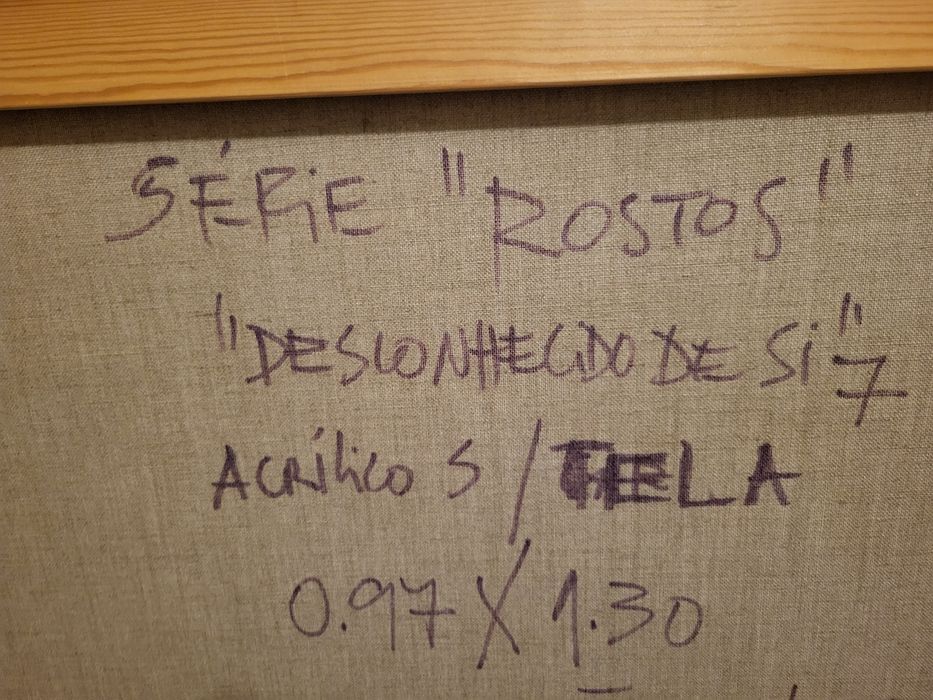 SÉRIE "ROSTOS"
"DESCONHECIDO DE SI" 7
ACRÍLICO S/TELA
0.97 X 1.30